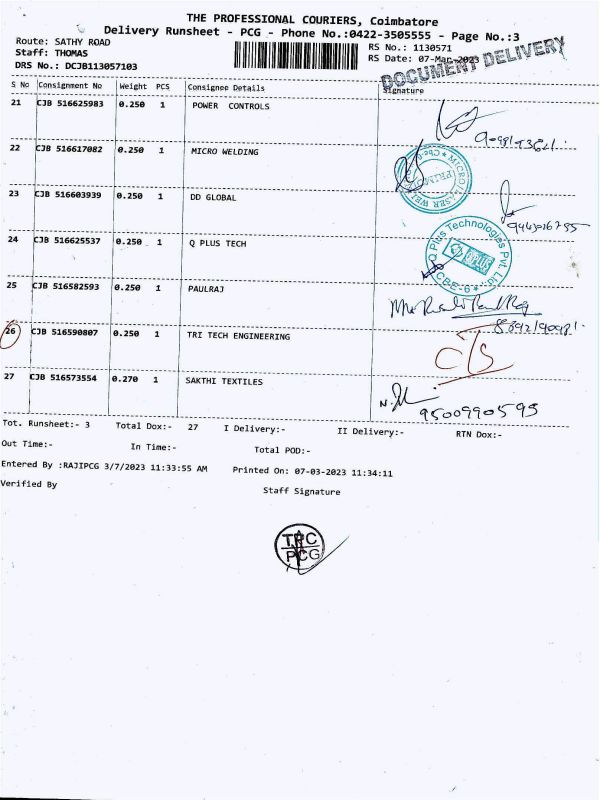 THE PROFESSIONAL COURIERS, Coimbatore
Delivery Runsheet - PCG - Phone No.:0422-3505555 - Page No.:3
Route: SATHY ROAD
RS No.: 1130571
Staff: THOMAS
RS Date: 07-Mar-2023
DRS No.: DCJB113057103
DOCUMENT DELIVERY
S No Consignment No Weight PCS Consignee Details Signature
21 CJB 516625983 0.250 1 POWER CONTROLS
22 CJB 516617082 0.250 1 MICRO WELDING
23 CJB 516603939 0.250 1 DD GLOBAL
24 CJB 516625537 0.250 1 Q PLUS TECH
Q Plus Technologies Pvt. Ltd
CBE-6
25 CJB 516582593 0.250 1 PAULRAJ
26 CJB 516590807 0.250 1 TRI TECH ENGINEERING
C/S
27 CJB 516573554 0.270 1 SAKTHI TEXTILES
9500990595
Tot. Runsheet:- 3 Total Dox:- 27 I Delivery:- II Delivery:- RTN Dox:-
Out Time:- In Time:- Total POD:-
Entered By :RAJIPCG 3/7/2023 11:33:55 AM Printed On: 07-03-2023 11:34:11
Verified By Staff Signature
TPC
PCG